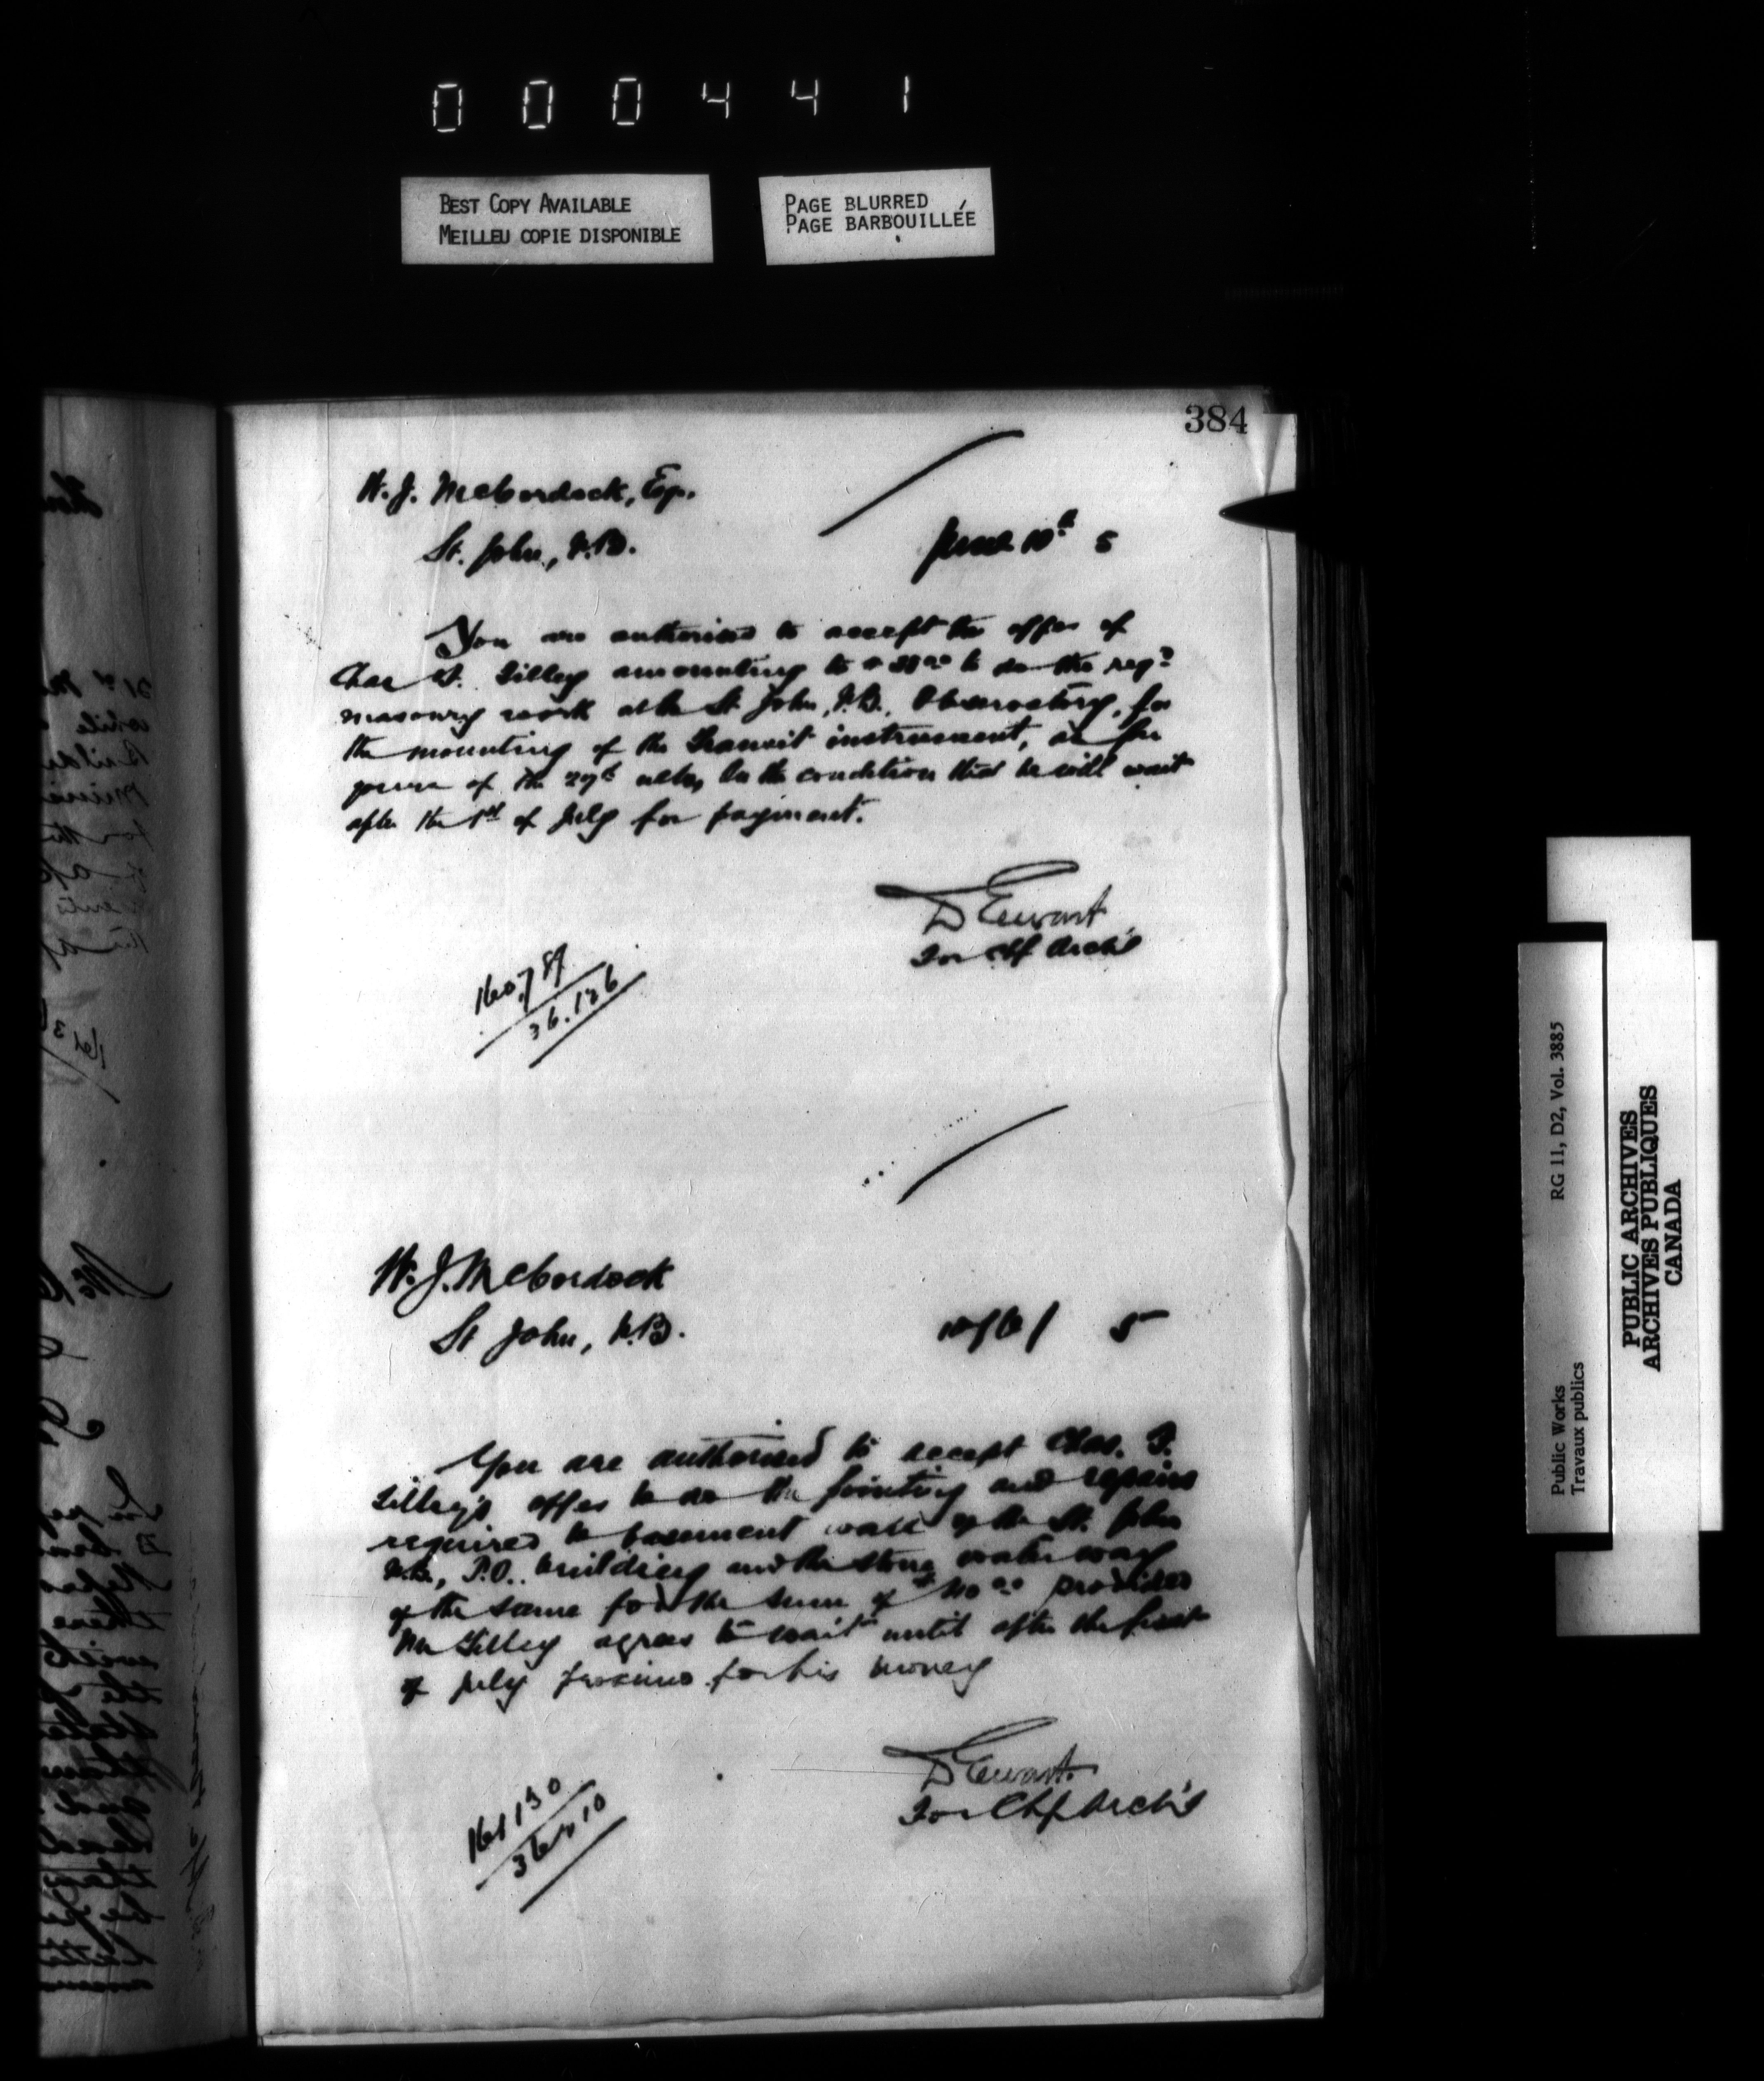 000441
BEST COPY AVAILABLE
MEILLEU COPIE DISPONIBLE
PAGE BLURRED
PAGE BARBOUILLÉE
384
W. J. McCordock, Esq.
St. John, N.B.
June 10th 5
You are authorised to accept the offer of
Chas F. Tilley amounting to $ to do the reqd
masonry work at the St John, N.B., Observatory, for
the mounting of the Transit instrument, as per
of the 29th ulto, on the condition that he will wait
after the 1st of July for payment.
D Ewart
For Chf Archt
160.789
36.126
W. J. McCordock
St John, N.B.
10/6/ 5
You are authorised to accept Chas. F.
Tilley's offer to do the pointing and repairs
required to basement wall of the St. John
N.B., P.O. building and the stone water way
of the same for the sum of provided
Mr Tilley agrees to wait until after the first
of July proximo for his money
D Ewart.
For Chf Archt
161130
PUBLIC ARCHIVES
ARCHIVES PUBLIQUES
CANADA
Public Works
Travaux publics
RG 11, D2, Vol. 3885